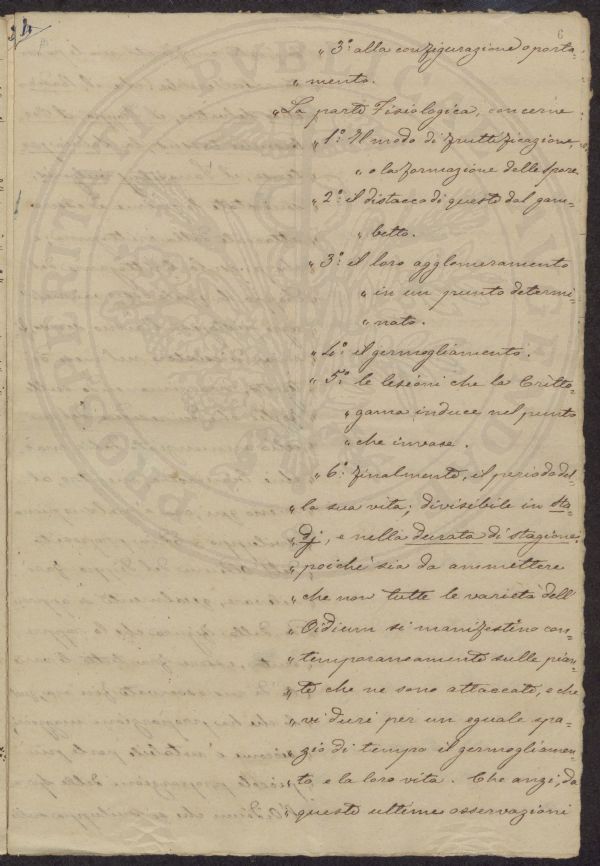 24
6
„ 3.° alla configurazione o porta-
„ mento.
„ La parte Fisiologica, concerne
„ 1.° Il modo di fruttificazione,
„ o la formazione delle spore
„ 2.° il distacco di queste dal gam-
„ betto.
„ 3.° il loro agglomeramento
„ in un punto determi-
„ nato.
„ 4.° il germogliamento.
„ 5.° le lesioni che la Critto-
„ gama induce nel punto
„ che invase.
„ 6.° finalmente, il periodo del-
„ la sua vita; divisibile in sta-
„ dj, e nella durata di stagione;
„ poiché sia da ammettere
„ che non tutte le varietà dell'
„ Oidium si manifestino con-
„ temporaneamente sulle pian-
„ te che ne sono attaccate, e che
„ vi duri per un eguale spa-
„ zio di tempo il germogliamen-
„ to, e la loro vita. Che anzi, da
„ queste ultime osservazioni
PROSPERITATI PUBLICAE AUGENDAE